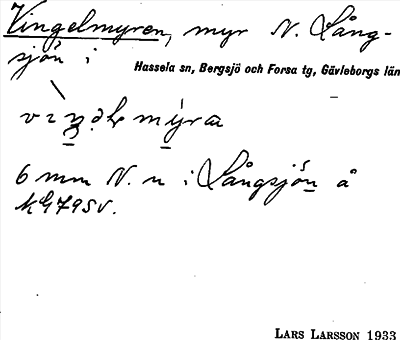 Vingelmyren, myr N. Lång-
sjön i
Hassela sn, Bergsjö och Forsa tg, Gävleborgs län
6 mm N. n i Långsjön å
KG 79 SV.
LARS LARSSON 1933